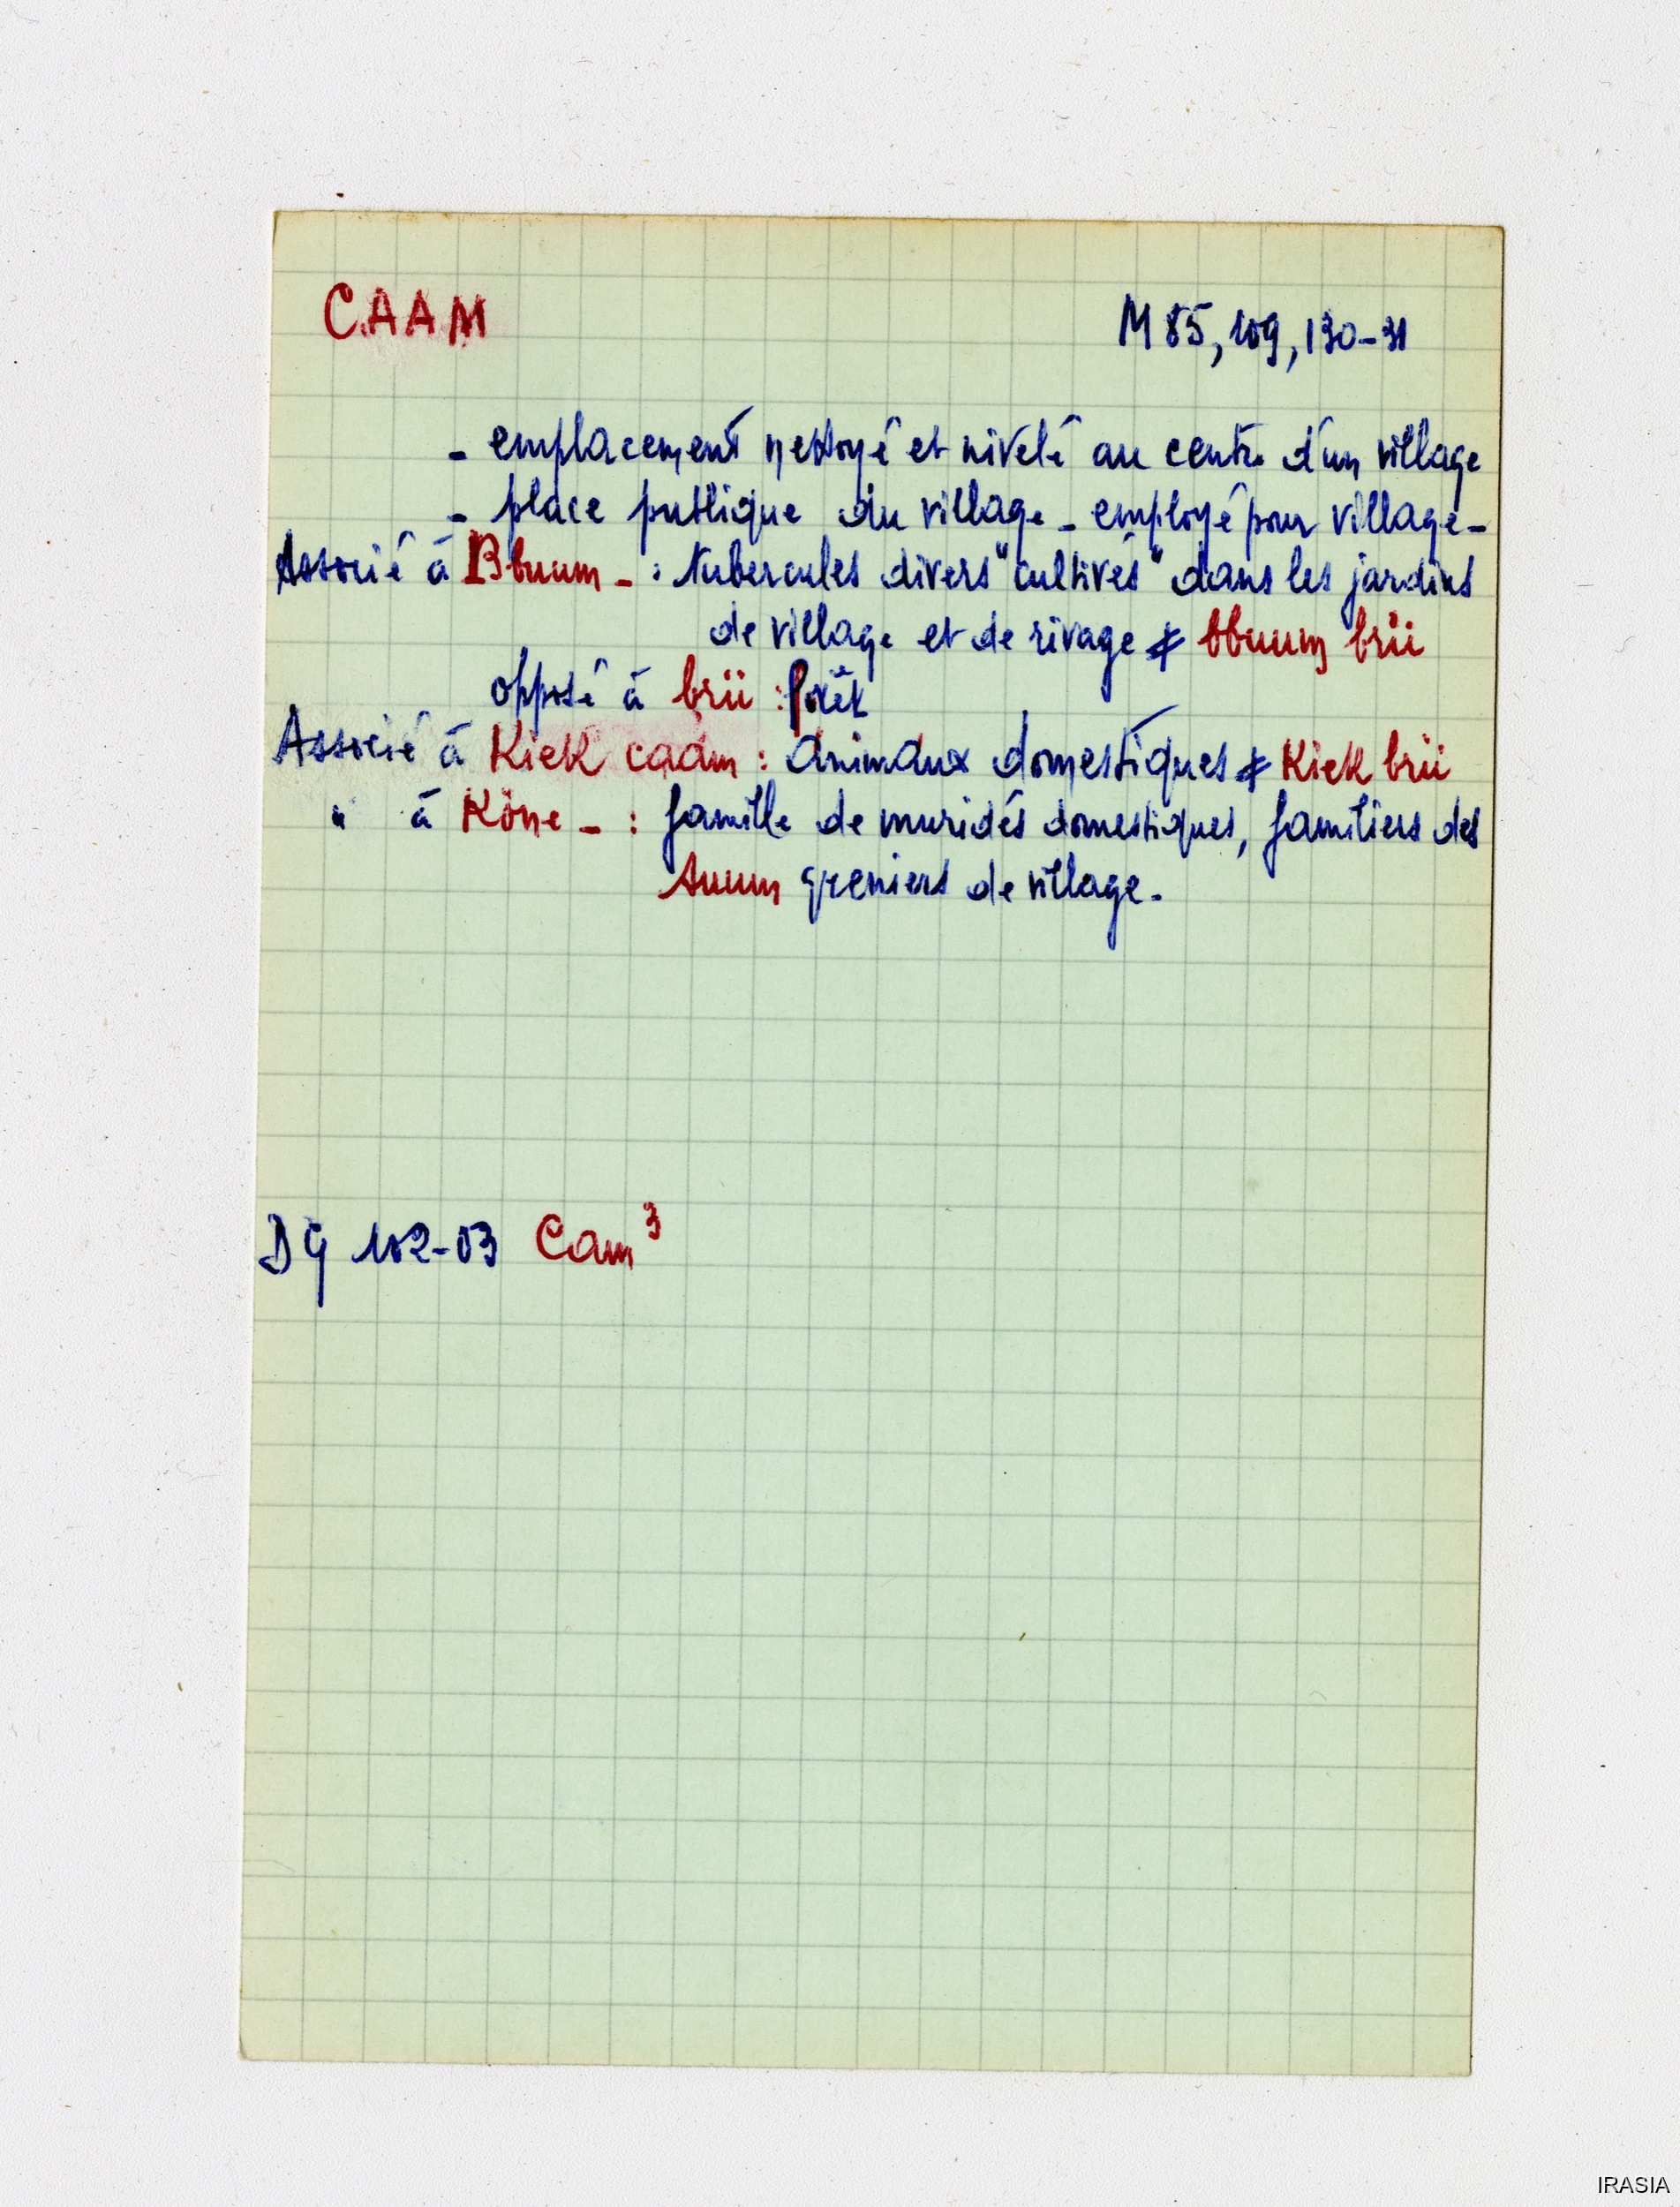 CAAM M 85, 109, 130-31
- emplacement nettoyé et nivelé au centre d'un village
- place publique du village - employé pour village -
Associé à Bbuum - : tubercules divers "cultivés" dans les jardins
de village et de rivage ≠ bbuum brii
opposé à brii : forêt
Associé à Kiek caam : animaux domestiques ≠ Kiek brii
" à Köne - : famille de muridés domestiques, familiers des
greniers de village.
DG 102-03 Cam³
IRASIA